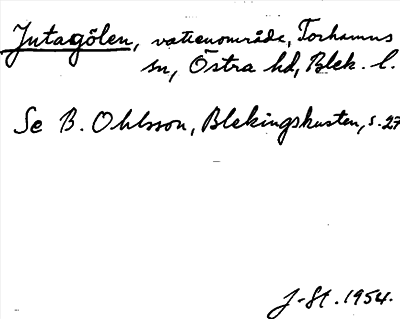 Jutagölen, vattenområde, Torhamns
sn, Östra hd, Blek. l.
Se B. Ohlsson, Blekingskusten, s. 27
J-St. 1954.